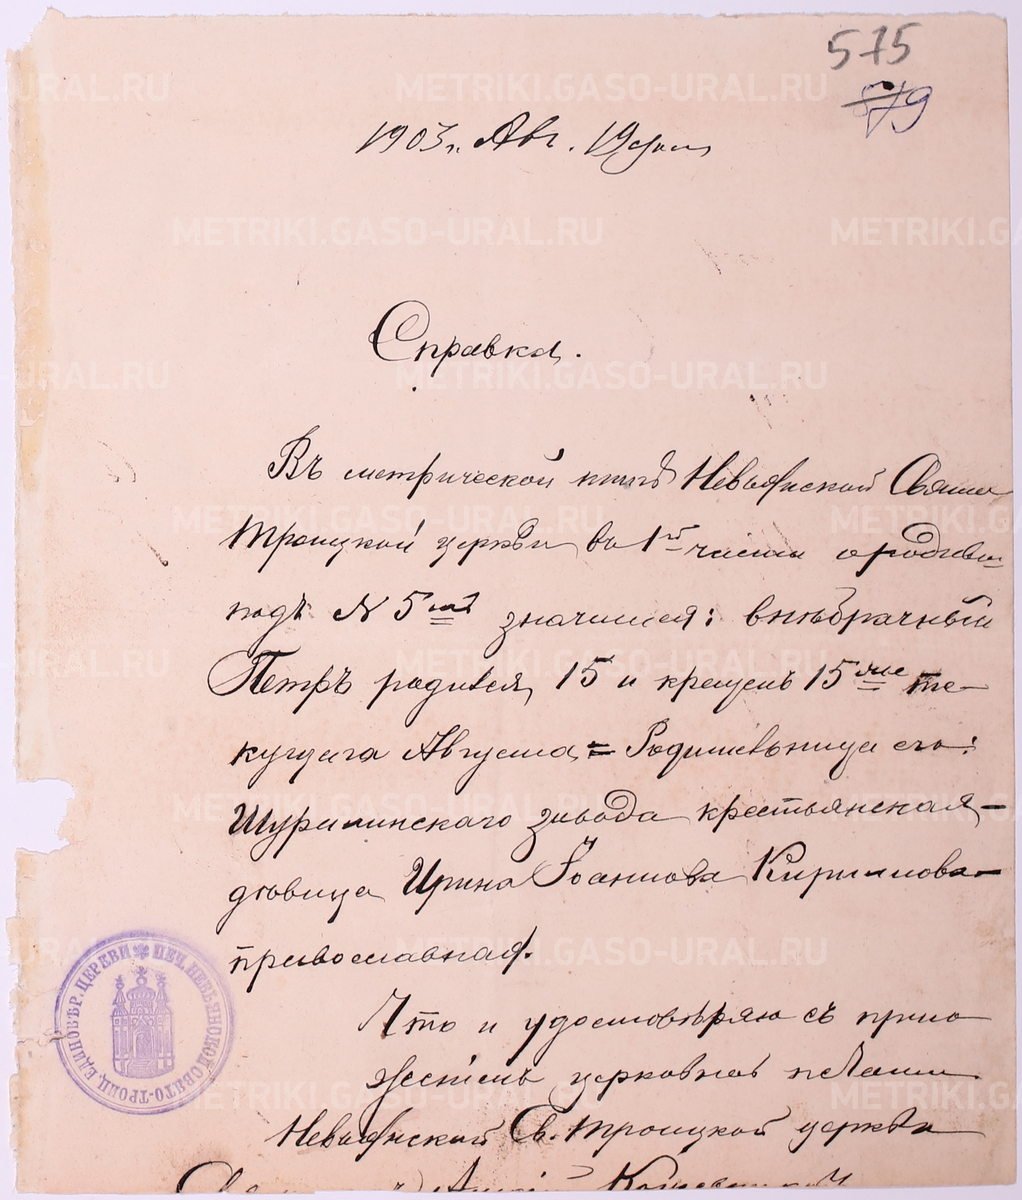 575
879
1903 г. Авг. 19 дня
Справка.
Въ метрической книгѣ Невьянской Свято
Троицкой церкви въ 1й части о родив.
подъ № 5мъ значится: внѣбрачный
Петръ родился 15 и крещенъ 15 те-
кущаго Августа = Родительница его:
Шуралинскаго завода крестьянская
дѣвица Ирина Іоаннова Кириллова
православная.
Что и удостовѣряю съ прило
женіемъ церковной печати
Невьянской Св. Троицкой церкви
ПЕЧ. НЕВЬЯНСКОЙ СВЯТО-ТРОИЦ. ЕДИНОВѢР. ЦЕРКВИ
METRIKI.GASO-URAL.RU